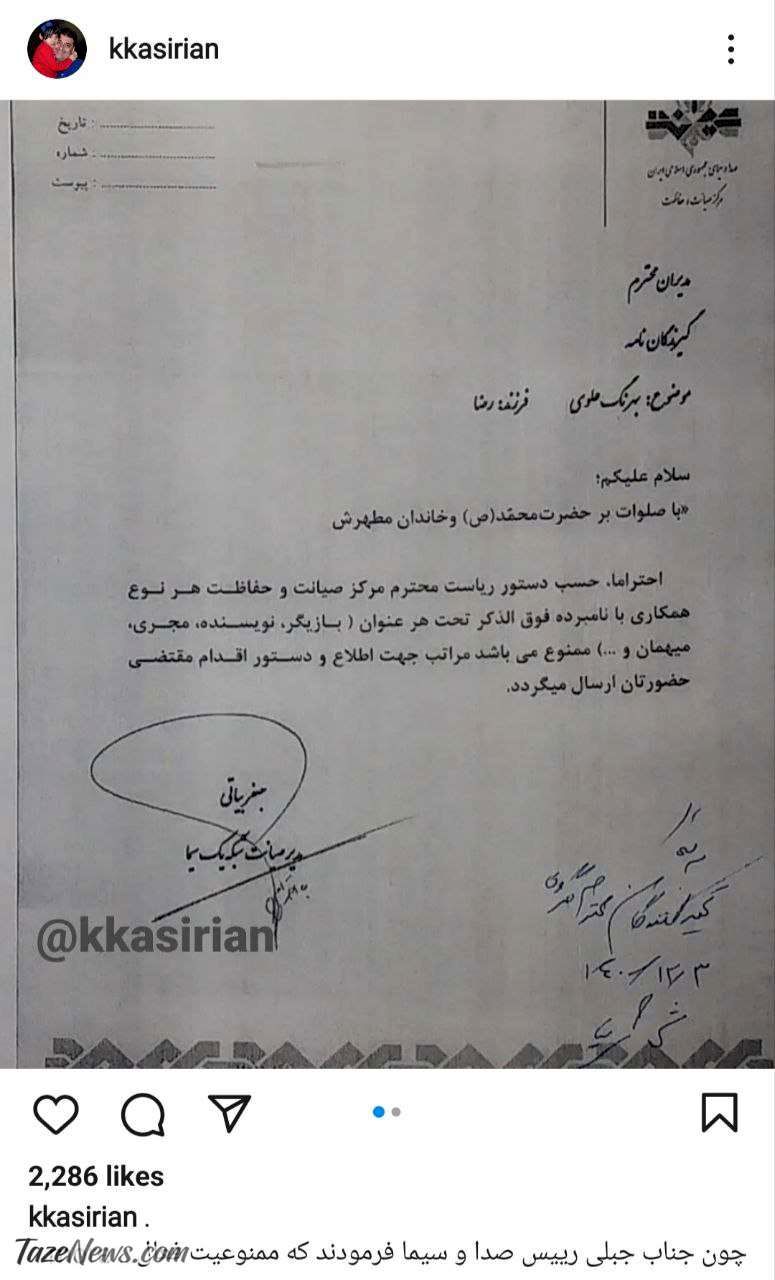 kkasirian
تاریخ :
شماره :
پیوست :
صدا و سیمای جمهوری اسلامی ایران
مرکز صیانت و حفاظت
مدیران محترم
گیرندگان نامه
موضوع: بهرنگ علوی فرزند: رضا
سلام علیکم؛
«با صلوات بر حضرت محمّد(ص) و خاندان مطهرش
احتراما، حسب دستور ریاست محترم مرکز صیانت و حفاظت هر نوع
همکاری با نامبرده فوق الذکر تحت هر عنوان ( بازیگر، نویسنده، مجری،
میهمان و ...) ممنوع می باشد مراتب جهت اطلاع و دستور اقدام مقتضی
حضورتان ارسال میگردد.
جعفر بیاتی
مدیر صیانت شبکه یک سیما
تهیه کنندگان محترم
۱۴۰۰/۱۲/۳
@kkasirian
2,286 likes
kkasirian .
چون جناب جبلی رییس صدا و سیما فرمودند که ممنوعیت
TazeNews.com